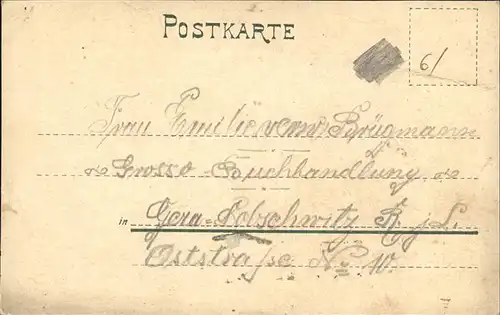 POSTKARTE
6/
Frau Emilie verw. Brügmann
Grosse Buchhandlung
in Gera-Debschwitz R. j. L.
Oststraße No 10.